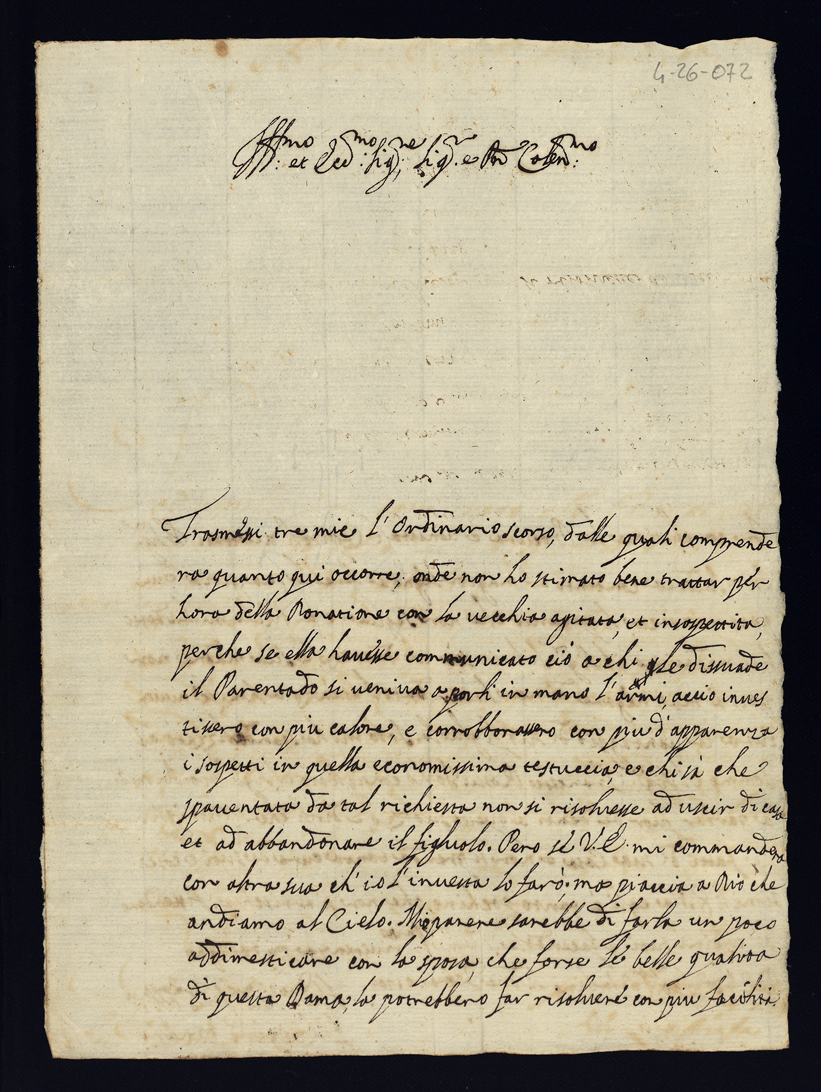 4-26-072
Ill:mo et Ecc:mo Sig:ne, Sig:r e Pñ Colen:mo
Trasmessi tre mie l'Ordinario scorso, dalle quali comprende
ra quanto qui occorre; onde non ho stimato bene trattar per
hora della Donatione con la vecchia agitata, et insospettita,
perche se ella havesse communicato ciò a chi le dissuade
il Parentado si veniva a porli in mano l'armi, accio inves
tissero con piu calore, e corrobborassero con piu d'apparenza
i sospetti in quella economissima testuccia, e chi sà che
spaventata da tal richiesta non si risolvesse ad uscir di casa
et ad abbandonare il figliuolo. Pero se V.E. mi commandera
con altra sua ch'io l'investa lo farò; ma piaccia a Dio che
andiamo al Cielo. Mio parere sarebbe di farla un poco
addimesticare con la sposa, che forse le belle qualità
di questa Dama, la potrebbero far risolvere con piu facilità.